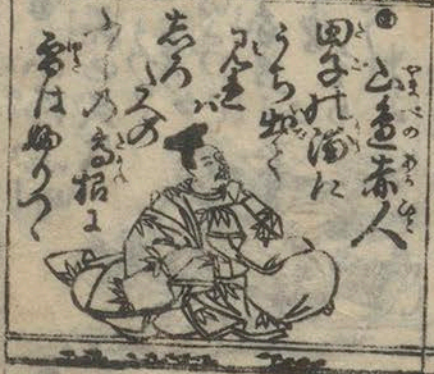 山邊赤人
田子の浦に
うち出て
見れば
しろ
たへの
ふじの高根に
雪はふりつゝ